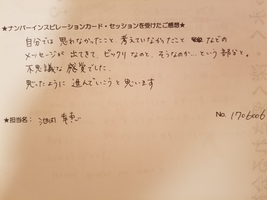 ★ナンバーインスピレーションカード・セッションを受けたご感想★
自分では 思わなかったこと、考えていなかったこと などの
メッセージが 出てきて、ビックリなのと、そうなのか…という部分と。
不思議な 感覚でした。
思ったように 進んでいこうと思います
★担当名: 池田 幸恵
No. 1706006